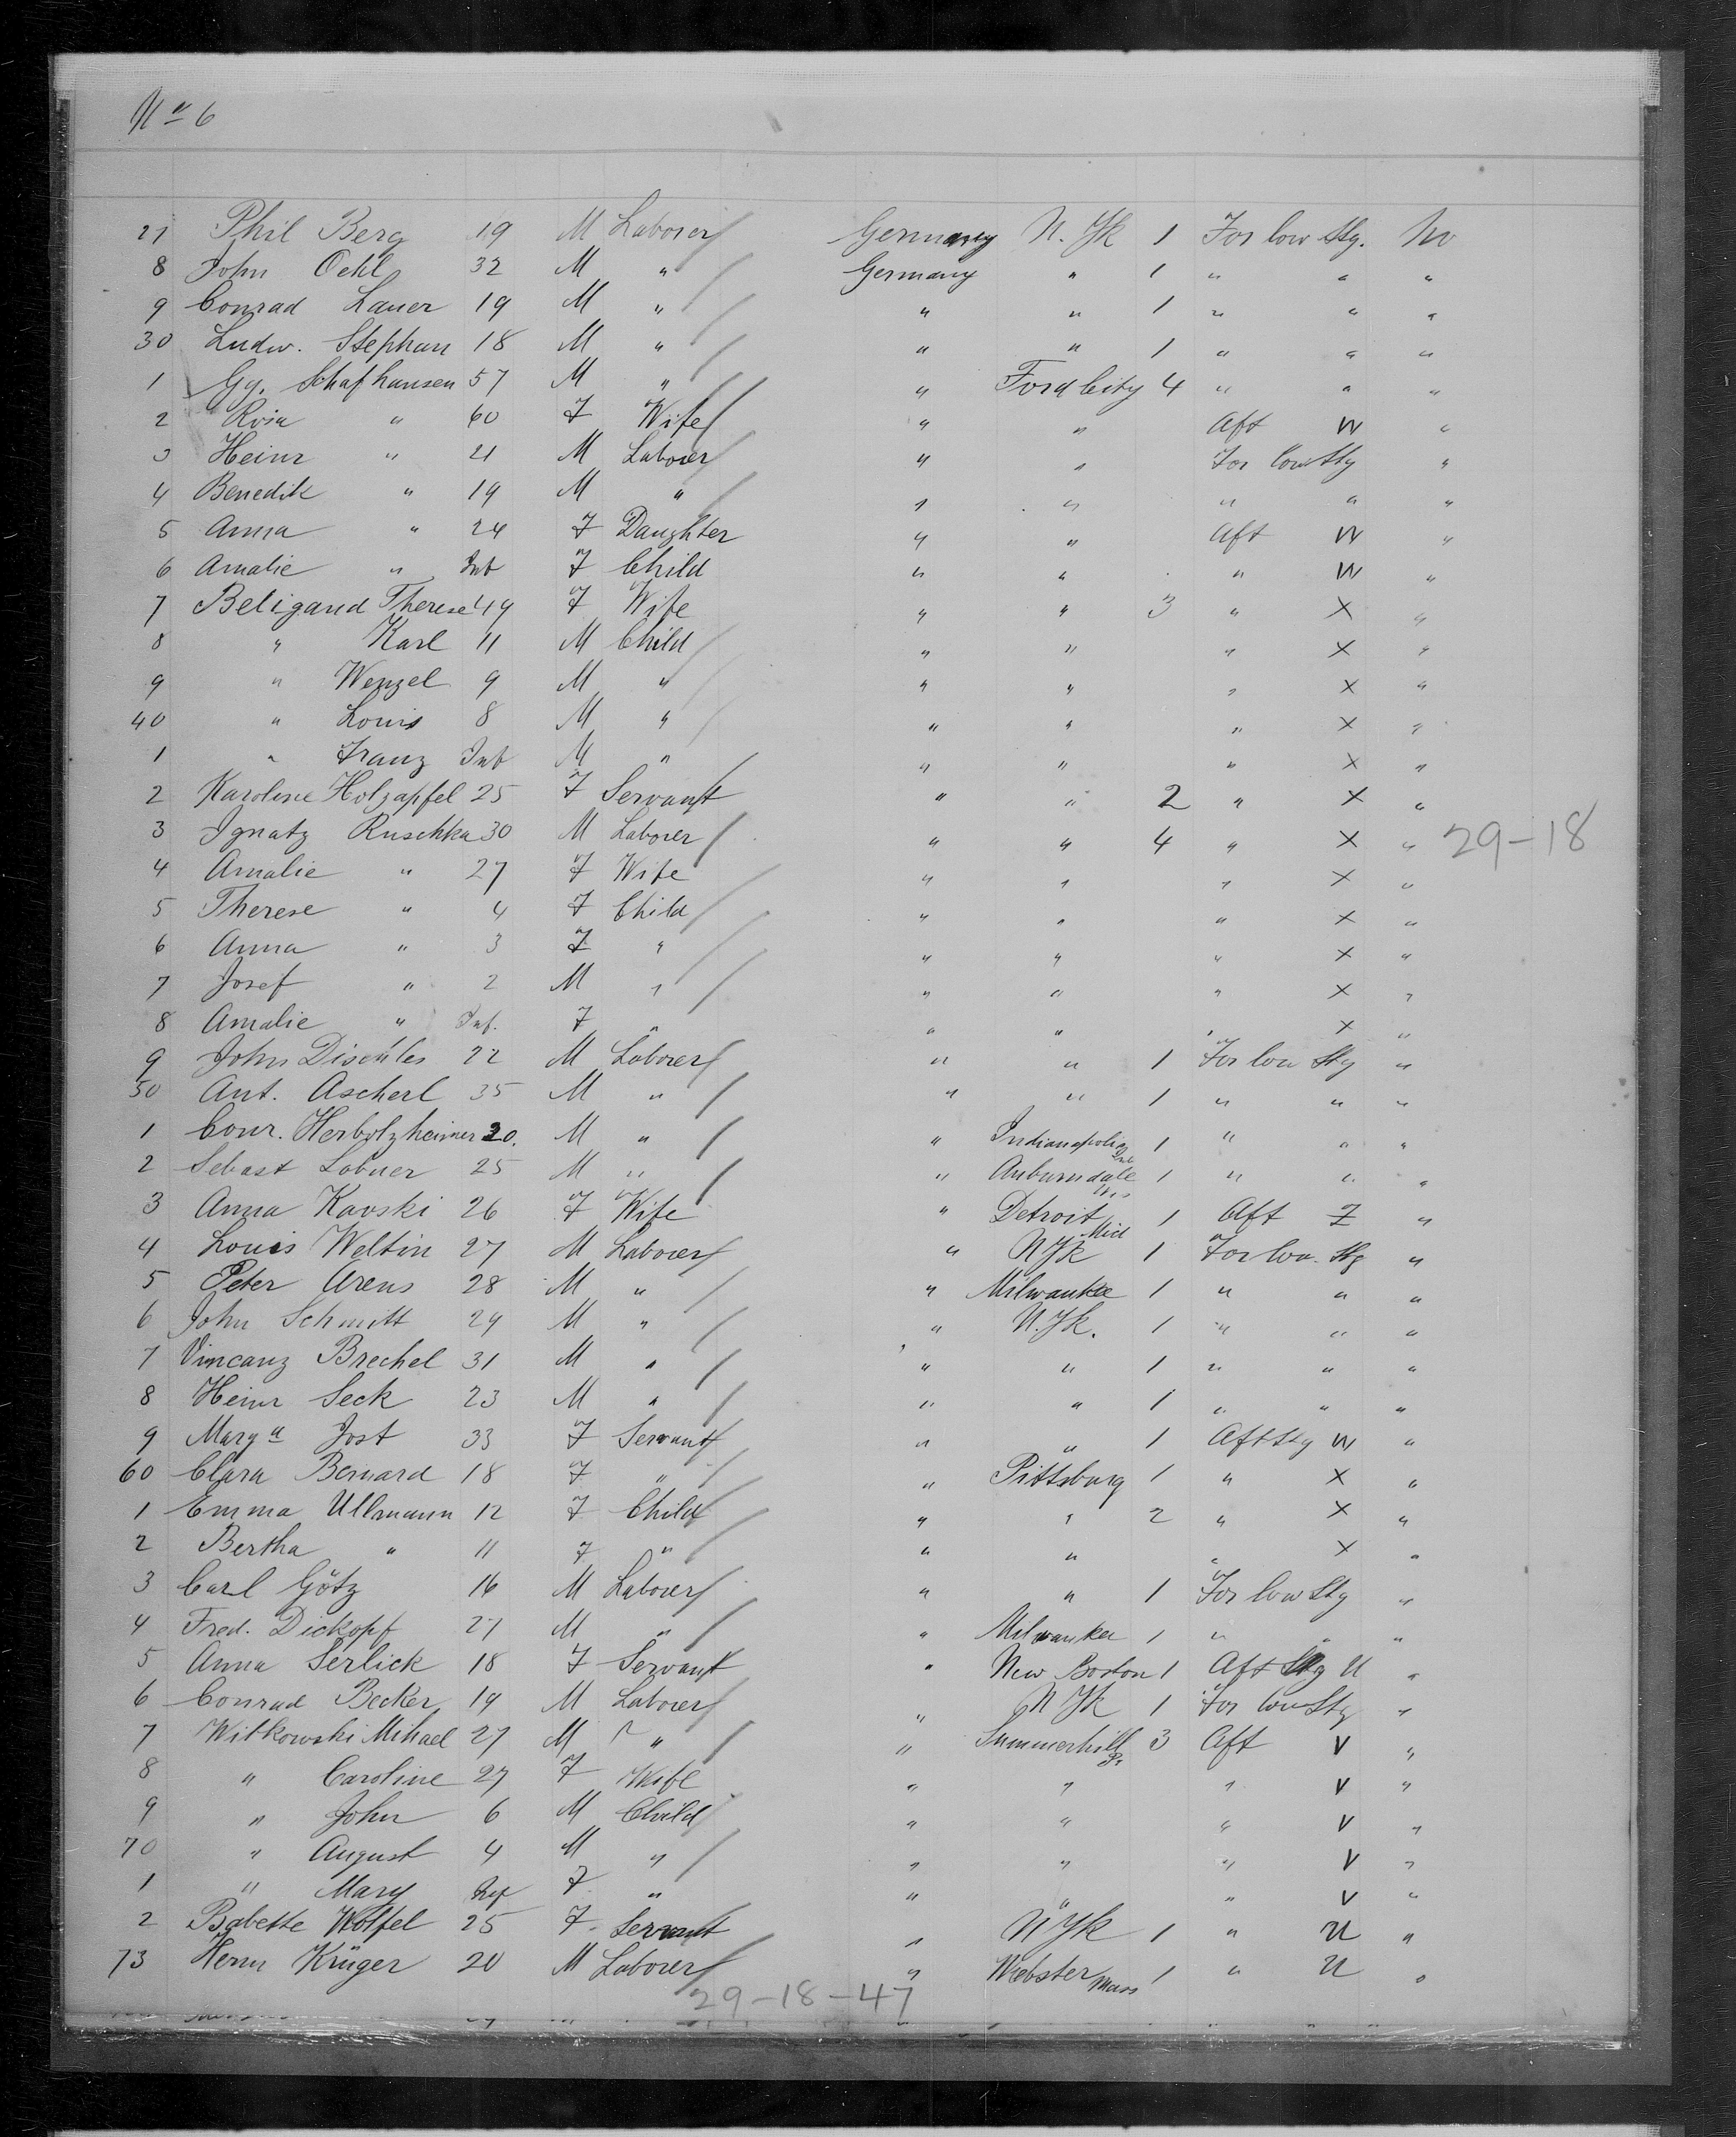 No 6
27 Phil Berg 19 M Laborer Germany N. Yk 1 For low Stg. No
8 John Oehl 32 M " Germany " 1 " " "
9 Conrad Lauer 19 M " " " 1 " " "
30 Ludw. Stephan 18 M " " " 1 " " "
1 Gg. Schafhausen 57 M " " Ford City 4 " " "
2 Rosa " 60 F Wife " " Aft W "
3 Heinr " 21 M Laborer " " For low Stg "
4 Benedik " 19 M " " " " " "
5 Anna " 24 F Daughter " " Aft W "
6 Amalie " Inf F Child " " " W "
7 Beligand Therese 49 F Wife " " 3 " X "
8 " Karl 11 M Child " " " X "
9 " Wenzel 9 M " " " " X "
40 " Louis 8 M " " " " X "
1 " Franz Inf M " " " " X "
2 Karoline Holzapfel 25 F Servant " " 2 " X "
3 Ignatz Ruschka 30 M Laborer " " 4 " X " 29-18
4 Amalie " 27 F Wife " " " X "
5 Therese " 4 F Child " " " X "
6 Anna " 3 F " " " " X "
7 Josef " 2 M " " " " X "
8 Amalie " Inf. F " " " " X "
9 John 22 M Laborer " " 1 For low Stg "
50 Ant. Ascherl 35 M " " " 1 " " "
1 Conr. Herbolzheimer 20. M " " Indianapolis Ind 1 " " "
2 Sebast Lobner 25 M " " Auburndale Wis 1 " " "
3 Anna Kavski 26 F Wife " Detroit Mich 1 Aft Z "
4 Louis Weltin 27 M Laborer " N Yk 1 For low. Stg "
5 Peter Arens 28 M " " Milwaukee 1 " " "
6 John Schmitt 29 M " " N. Yk. 1 " " "
7 Vincanz Brechel 31 M " " " 1 " " "
8 Heinr Seck 23 M " " " 1 " " "
9 Marga Jost 33 F Servant " " 1 Aft Stg W "
60 Clara Bernard 18 F " " Pittsburg 1 " X "
1 Emma Ullmann 12 F Child " " 2 " X "
2 Bertha " 11 F " " " " X "
3 Carl Götz 16 M Laborer " " 1 For low Stg "
4 Fred. Dickopf 27 M " " Milwaukee 1 " " "
5 Anna Serlick 18 F Servant " New Boston 1 Aft Stg U "
6 Conrad Becker 19 M Laborer " N Yk 1 For low Stg "
7 Witkowski Mihael 27 M " " Summerhill Pa 3 Aft V "
8 " Caroline 27 F Wife " " " V "
9 " John 6 M Child " " " V "
70 " August 4 M " " " " V "
1 " Mary Inf F " " " " V "
2 Babette Wolfel 25 F Servant " N Yk 1 " U "
73 Herm Krüger 20 M Laborer " Webster Mass 1 " U "
29-18-47